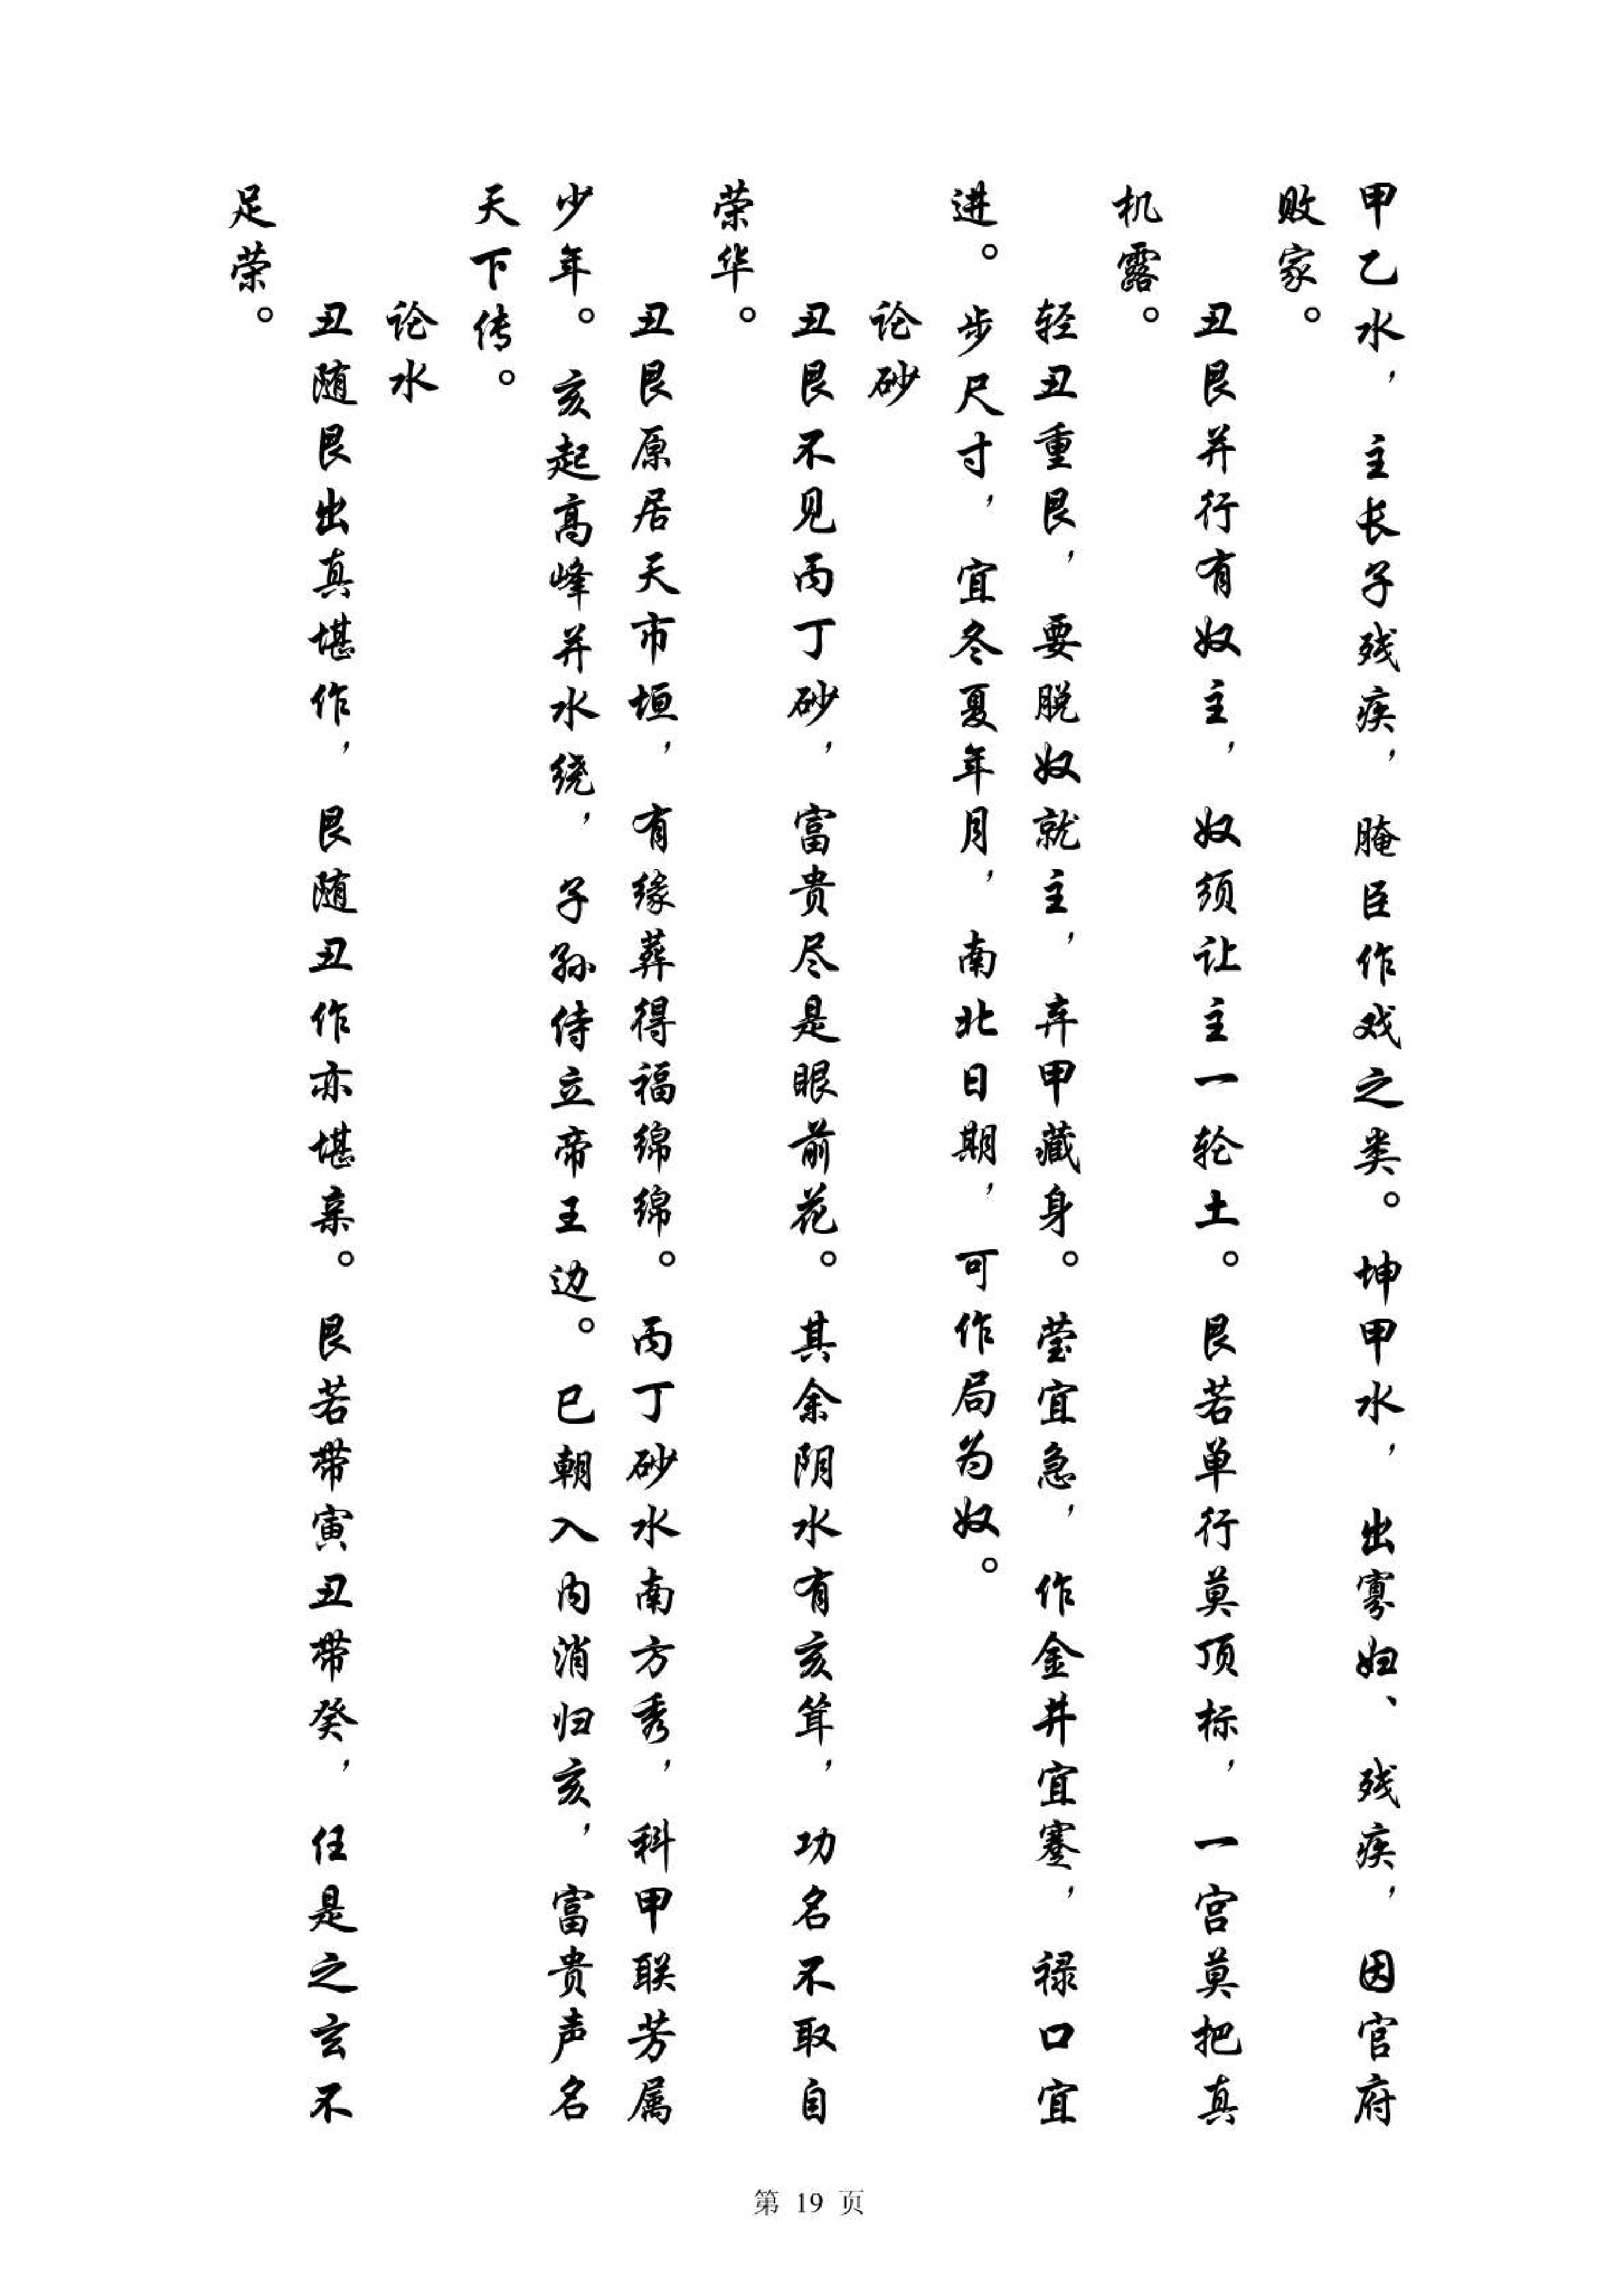 甲乙水，主长子残疾，腌臣作戏之类。坤甲水，出寡妇、残疾，因官府
败家。
丑艮并行有奴主，奴须让主一轮土。艮若单行莫顶标，一宫莫把真
机露。
轻丑重艮，要脱奴就主，弃甲藏身。莹宜急，作金井宜蹇，禄口宜
进。步尺寸，宜冬夏年月，南北日期，可作局为奴。
论砂
丑艮不见丙丁砂，富贵尽是眼前花。其余阴水有亥耸，功名不取自
荣华。
丑艮原居天市垣，有缘葬得福绵绵。丙丁砂水南方秀，科甲联芳属
少年。亥起高峰并水绕，子孙侍立帝王边。巳朝入内消归亥，富贵声名
天下传。
论水
丑随艮出真堪作，艮随丑作亦堪亲。艮若带寅丑带癸，任是之玄不
足荣。
第 19 页